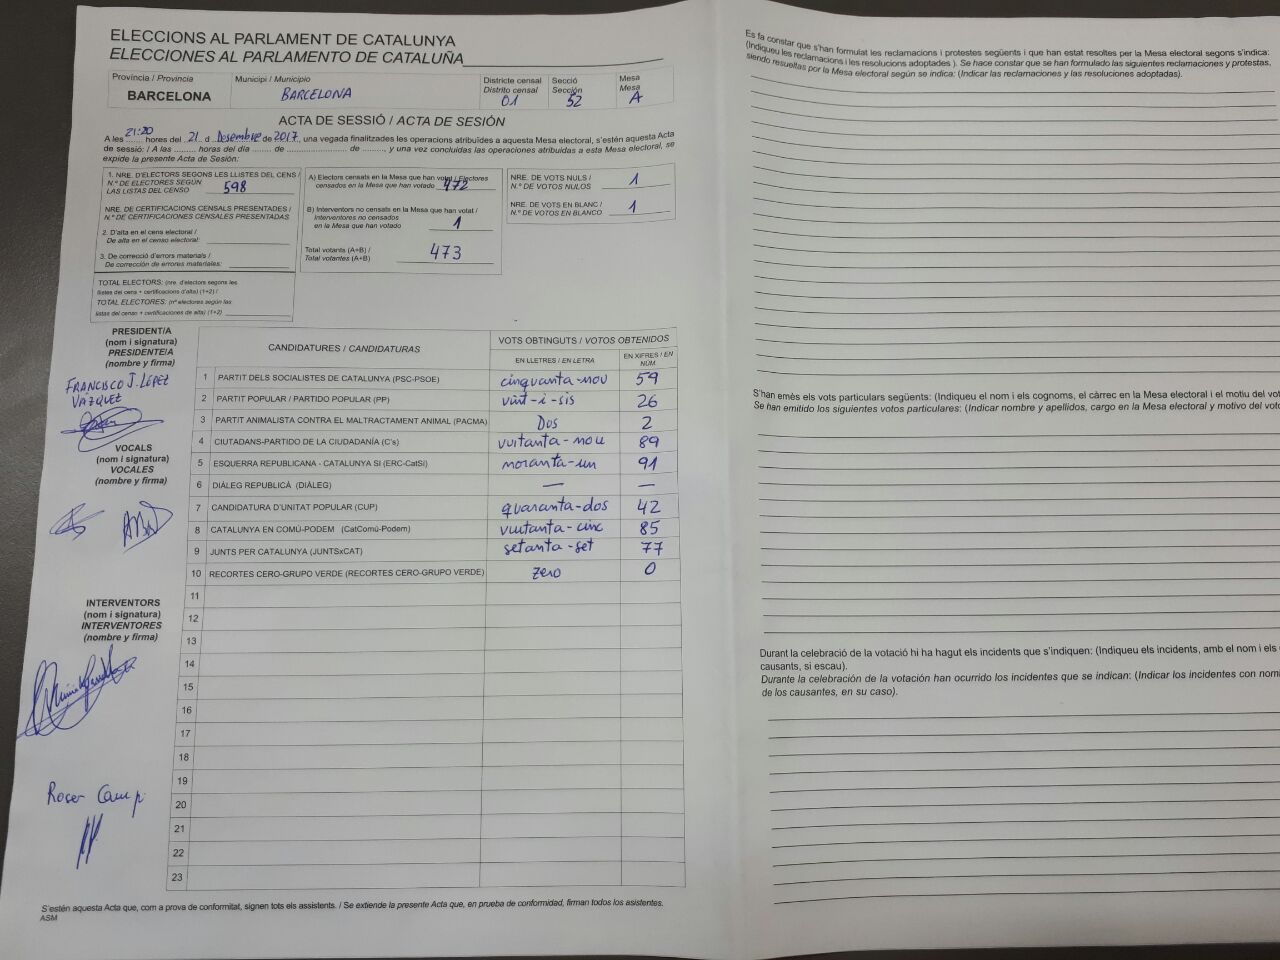 ELECCIONS AL PARLAMENT DE CATALUNYA
ELECCIONES AL PARLAMENTO DE CATALUÑA
Província / Provincia
BARCELONA
Municipi / Municipio
BARCELONA
Districte censal
Distrito censal
01
Secció
Sección
52
Mesa
Mesa
A
ACTA DE SESSIÓ / ACTA DE SESIÓN
A les 21:20 hores del 21 d Desembre de 2017, una vegada finalitzades les operacions atribuïdes a aquesta Mesa electoral, s'estén aquesta Acta
de sessió: / A las ........ horas del día ....... de ..................... de ........., y una vez concluidas las operaciones atribuidas a esta Mesa electoral, se
expide la presente Acta de Sesión:
1. NRE. D'ELECTORS SEGONS LES LLISTES DEL CENS /
N.º DE ELECTORES SEGÚN
LAS LISTAS DEL CENSO 598
NRE. DE CERTIFICACIONS CENSALS PRESENTADES /
N.º DE CERTIFICACIONES CENSALES PRESENTADAS
2. D'alta en el cens electoral /
De alta en el censo electoral:
3. De correcció d'errors materials /
De corrección de errores materiales:
TOTAL ELECTORS: (nre. d'electors segons les
llistes del cens + certificacions d'alta) (1+2) /
TOTAL ELECTORES: (nº electores según las
listas del censo + certificaciones de alta) (1+2)
A) Electors censats en la Mesa que han votat / Electores
censados en la Mesa que han votado 472
B) Interventors no censats en la Mesa que han votat /
Interventores no censados
en la Mesa que han votado 1
Total votants (A+B) /
Total votantes (A+B) 473
NRE. DE VOTS NULS /
N.º DE VOTOS NULOS 1
NRE. DE VOTS EN BLANC /
N.º DE VOTOS EN BLANCO 1
PRESIDENT/A
(nom i signatura)
PRESIDENTE/A
(nombre y firma)
FRANCISCO J. LÓPEZ
VÁZQUEZ
VOCALS
(nom i signatura)
VOCALES
(nombre y firma)
INTERVENTORS
(nom i signatura)
INTERVENTORES
(nombre y firma)
Roser Camp
CANDIDATURES / CANDIDATURAS
VOTS OBTINGUTS / VOTOS OBTENIDOS
EN LLETRES / EN LETRA
EN XIFRES / EN NÚM
1 PARTIT DELS SOCIALISTES DE CATALUNYA (PSC-PSOE) cinquanta-nou 59
2 PARTIT POPULAR / PARTIDO POPULAR (PP) vint-i-sis 26
3 PARTIT ANIMALISTA CONTRA EL MALTRACTAMENT ANIMAL (PACMA) Dos 2
4 CIUTADANS-PARTIDO DE LA CIUDADANÍA (C's) vuitanta-nou 89
5 ESQUERRA REPUBLICANA - CATALUNYA SI (ERC-CatSí) noranta-un 91
6 DIÀLEG REPUBLICÀ (DIÀLEG) — —
7 CANDIDATURA D'UNITAT POPULAR (CUP) quaranta-dos 42
8 CATALUNYA EN COMÚ-PODEM (CatComú-Podem) vuitanta-cinc 85
9 JUNTS PER CATALUNYA (JUNTSxCAT) setanta-set 77
10 RECORTES CERO-GRUPO VERDE (RECORTES CERO-GRUPO VERDE) zero 0
11
12
13
14
15
16
17
18
19
20
21
22
23
S'estén aquesta Acta que, com a prova de conformitat, signen tots els assistents. / Se extiende la presente Acta que, en prueba de conformidad, firman todos los asistentes.
ASM
Es fa constar que s'han formulat les reclamacions i protestes següents i que han estat resoltes per la Mesa electoral segons s'indica:
(Indiqueu les reclamacions i les resolucions adoptades ). Se hace constar que se han formulado las siguientes reclamaciones y protestas,
siendo resueltas por la Mesa electoral según se indica: (Indicar las reclamaciones y las resoluciones adoptadas).
S'han emès els vots particulars següents: (Indiqueu el nom i els cognoms, el càrrec en la Mesa electoral i el motiu del vot
Se han emitido los siguientes votos particulares: (Indicar nombre y apellidos, cargo en la Mesa electoral y motivo del voto
Durant la celebració de la votació hi ha hagut els incidents que s'indiquen: (Indiqueu els incidents, amb el nom i els
causants, si escau).
Durante la celebración de la votación han ocurrido los incidentes que se indican: (Indicar los incidentes con nom
de los causantes, en su caso).